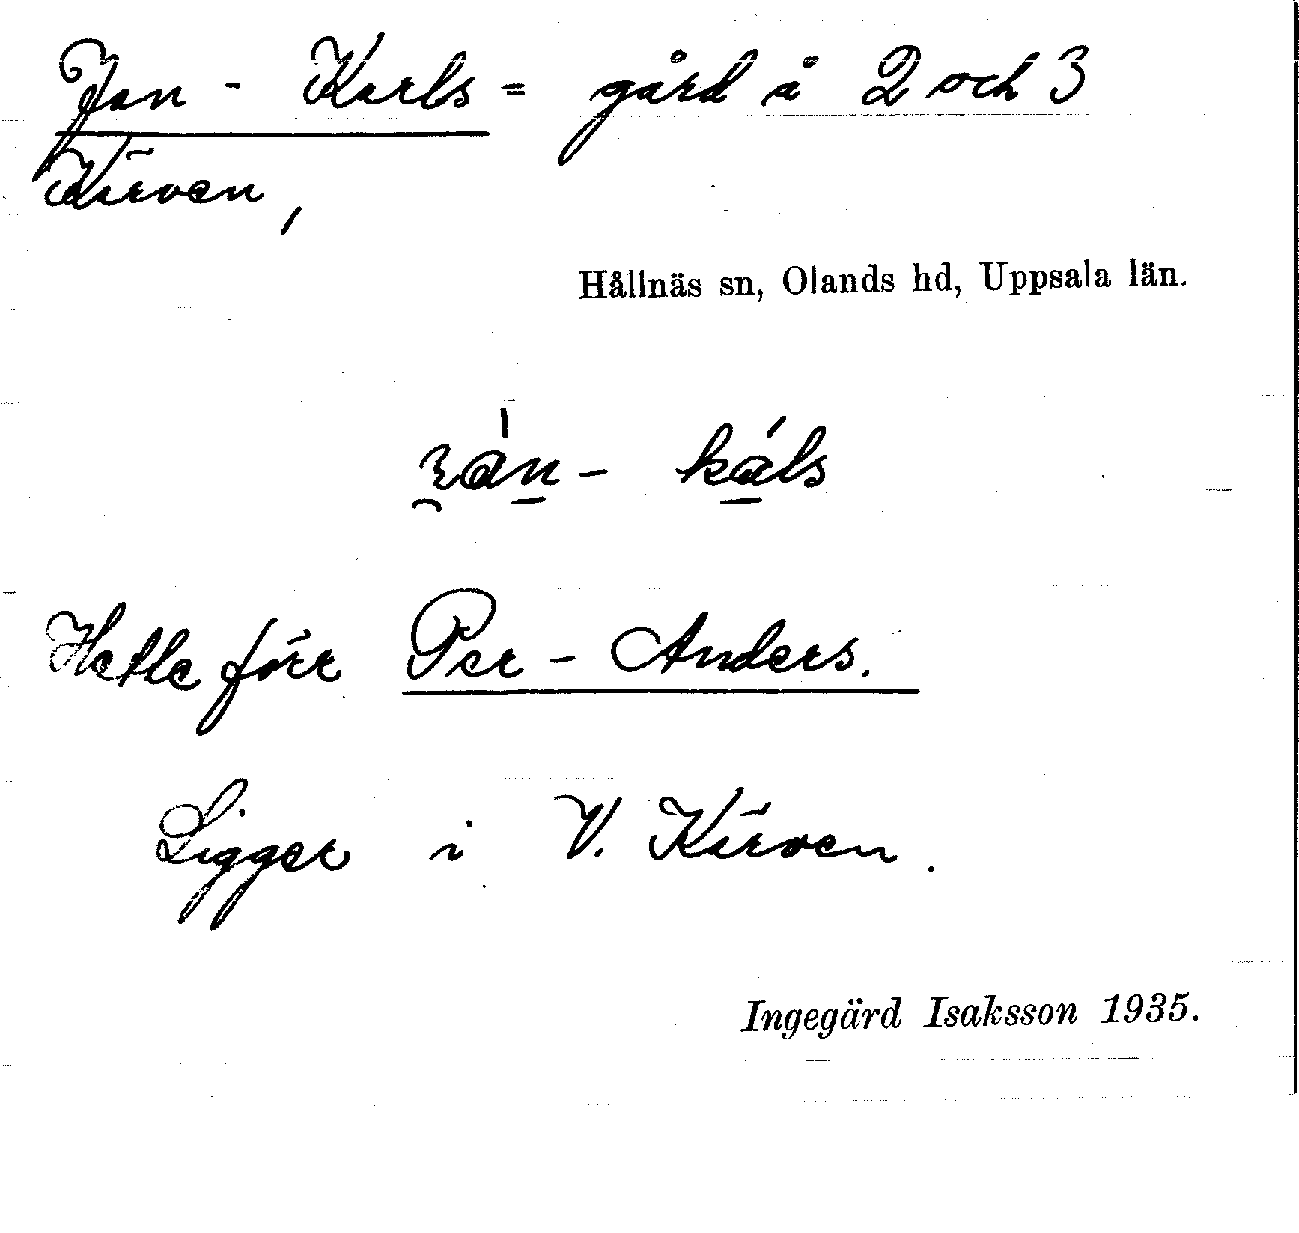 Jan - Karls = gård å 2 och 3
Kärven,
Hållnäs sn, Olands hd, Uppsala län.
ʒàn - káls
Hette förr Per - Anders.
Ligger i V. Kärven.
Ingegärd Isaksson 1935.